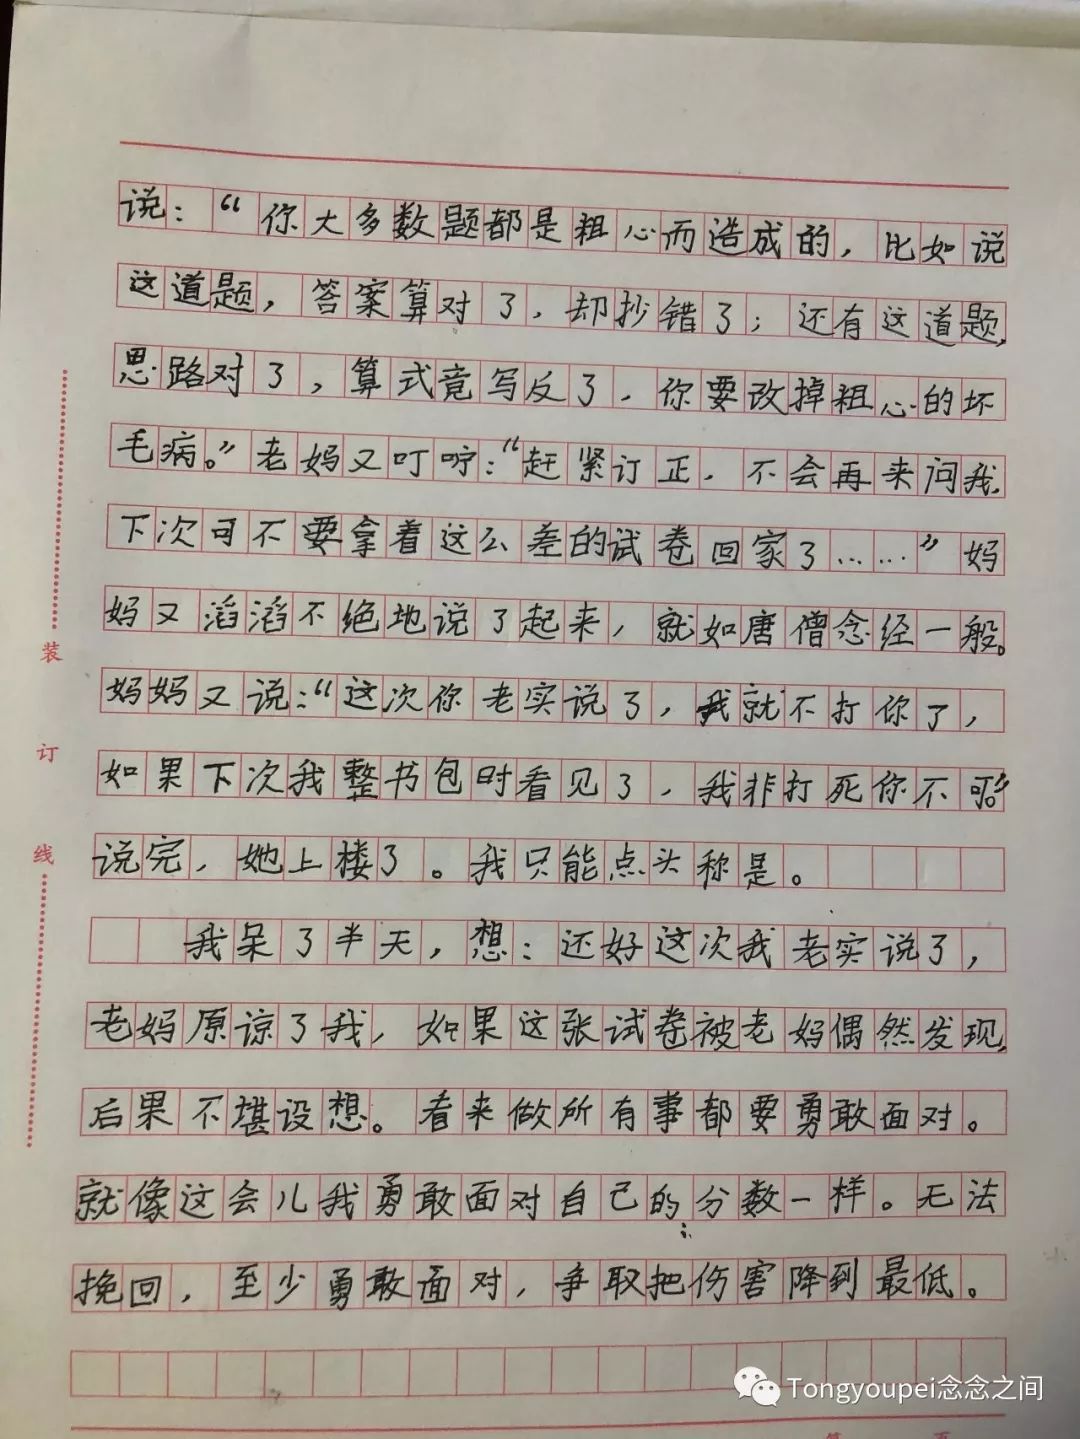 说：“你大多数题都是粗心而造成的，比如说
这道题，答案算对了，却抄错了；还有这道题，
思路对了，算式竟写反了，你要改掉粗心的坏
毛病。”老妈又叮咛：“赶紧订正，不会再来问我，
下次可不要拿着这么差的试卷回家了……”妈
妈又滔滔不绝地说了起来，就如唐僧念经一般。
妈妈又说：“这次你老实说了，我就不打你了，
如果下次我整书包时看见了，我非打死你不可”
说完，她上楼了。我只能点头称是。
我呆了半天，想：还好这次我老实说了，
老妈原谅了我，如果这张试卷被老妈偶然发现，
后果不堪设想。看来做所有事都要勇敢面对。
就像这会儿我勇敢面对自己的分数一样。无法
挽回，至少勇敢面对，争取把伤害降到最低。
装
订
线
Tongyoupei念念之间